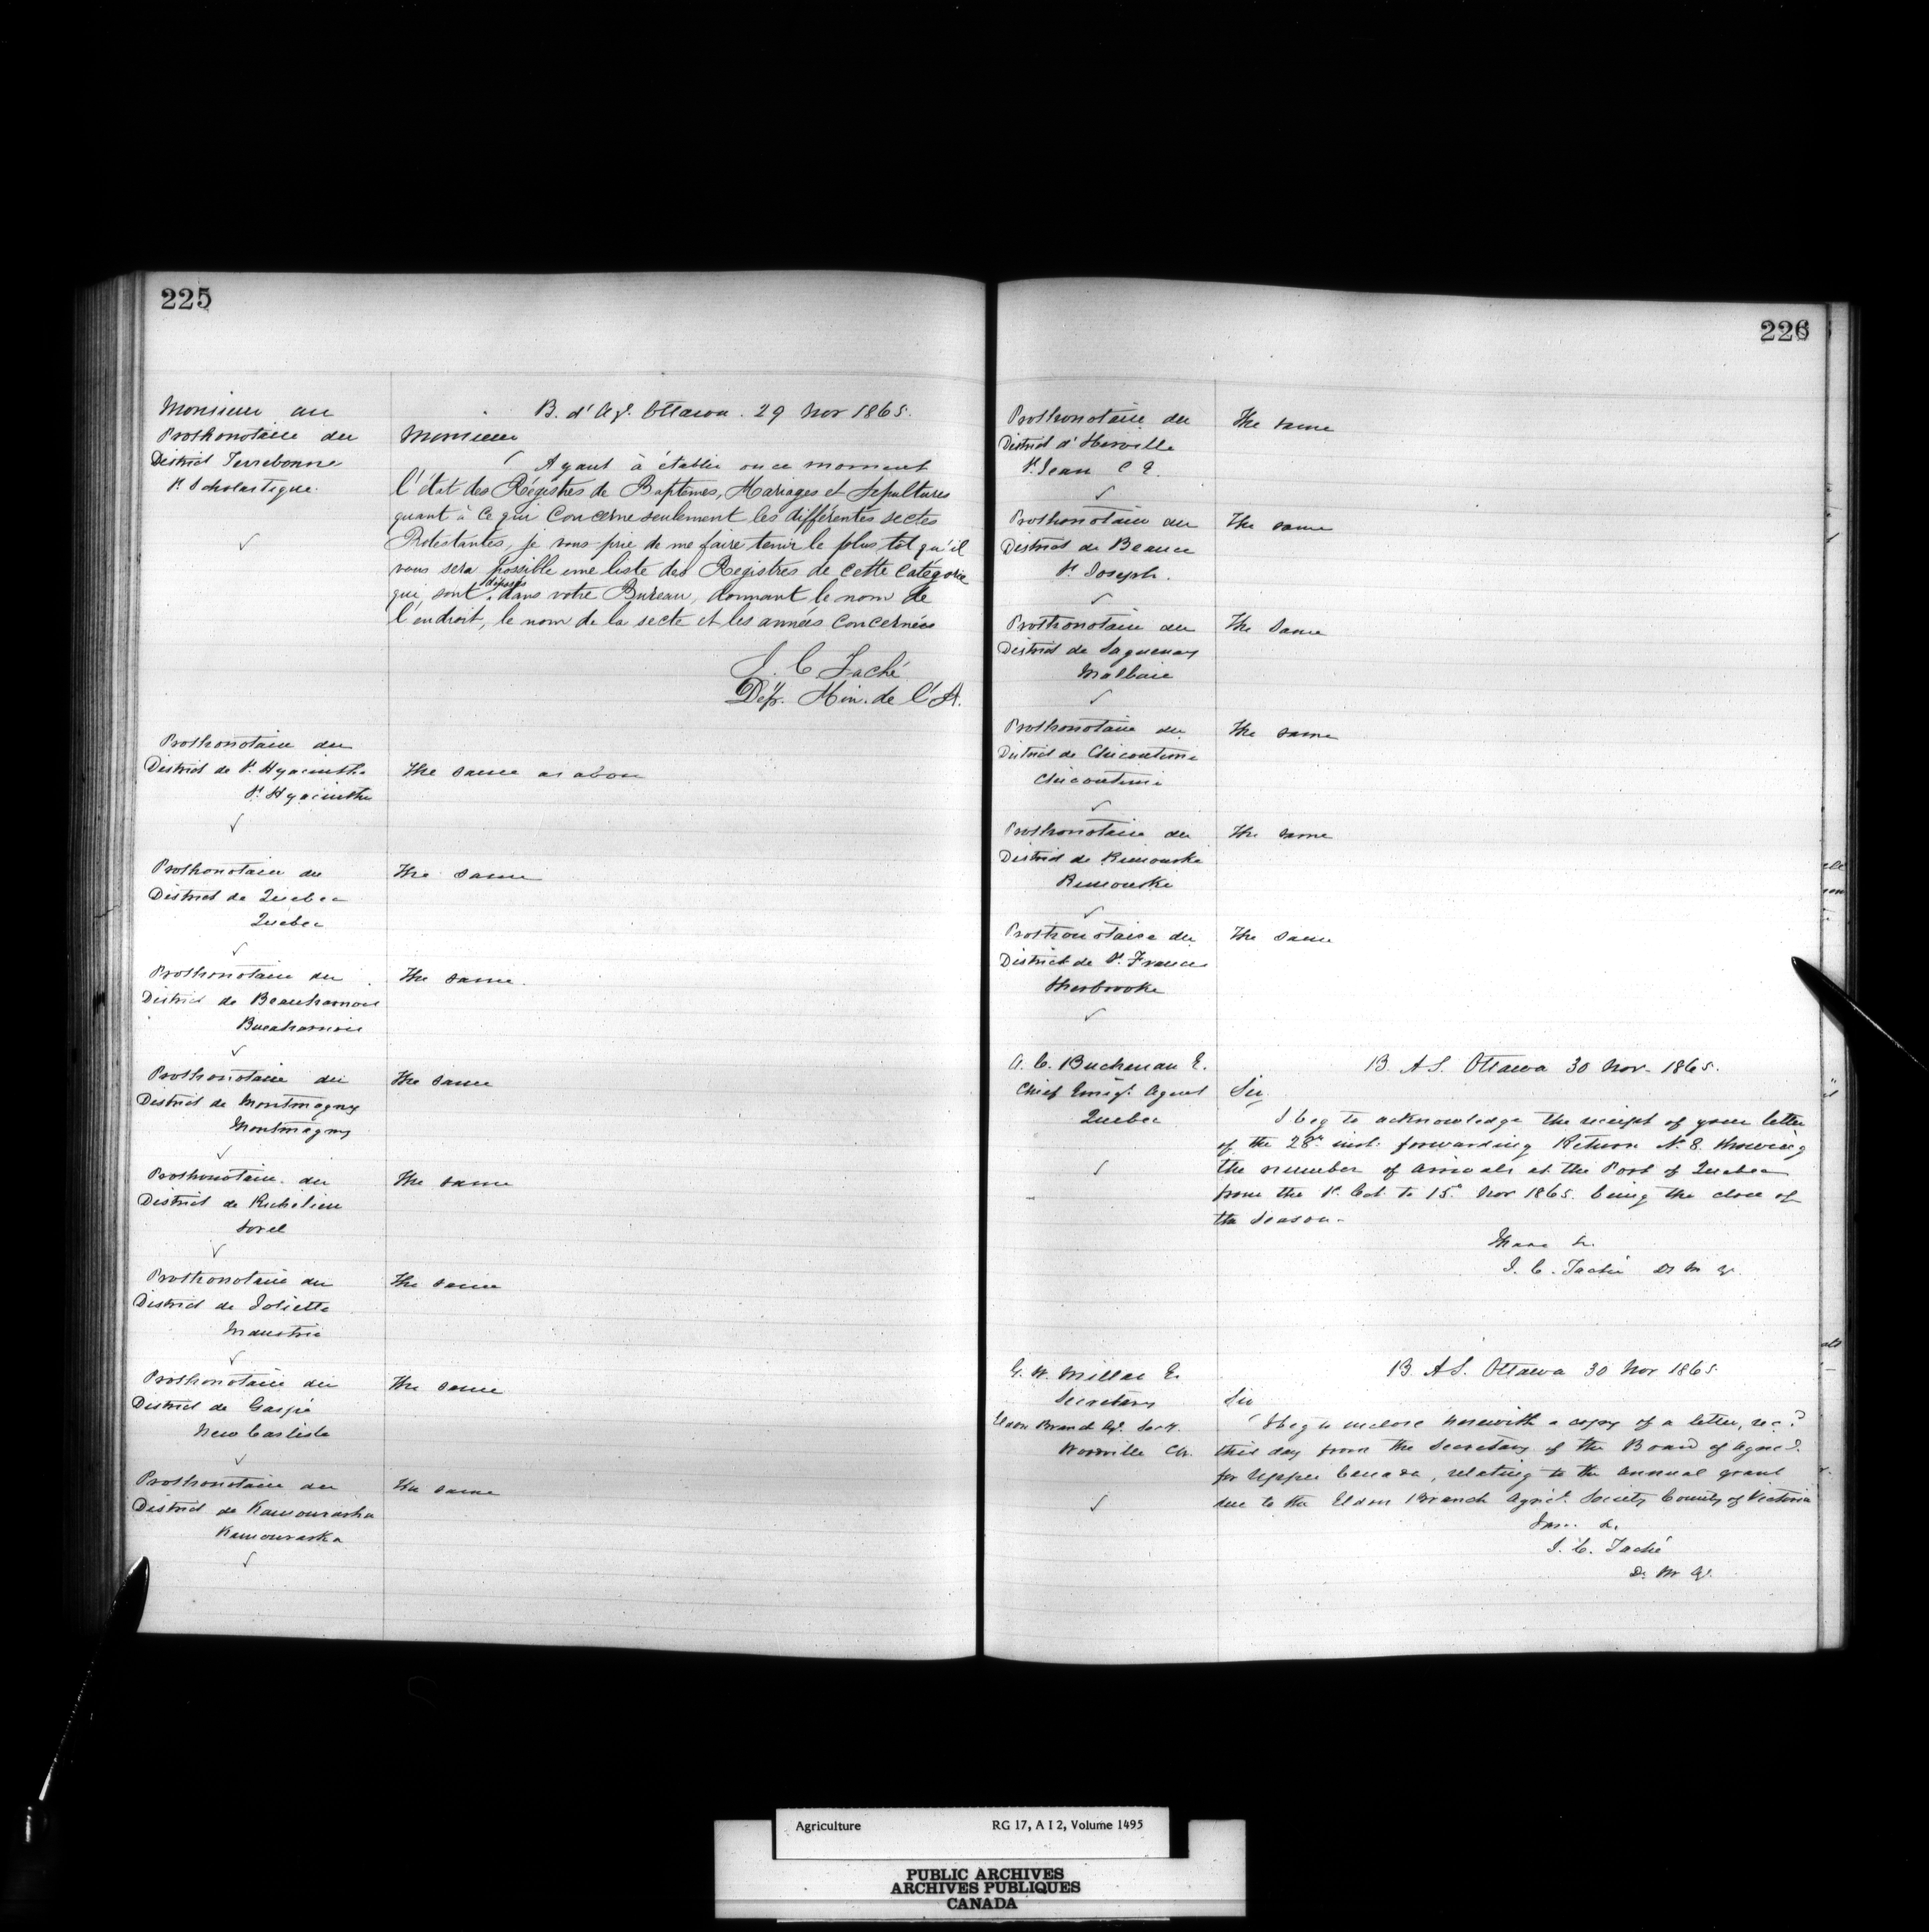 225
Monsieur au
Prothonotaire du
District Terrebonne
St Scholastique
B. d'Ag. Ottawa. 29 Nov 1865.
Monsieur
Ayant à établir en ce moment
l'état des Régistres de Baptêmes, Mariages et Sépultures
quant à ce qui concerne seulement les différentes sectes
Protestantes, je vous prie de me faire tenir le plus tôt qu'il
vous sera possible une liste des Registres de cette Categorie
qui sont déposés dans votre Bureau, donnant le nom de
l'endroit, le nom de la secte et les années concernées
J. C Taché
Dép. Min. de l'A.
Prothonotaire du
District de St Hyacinthe
St Hyacinthe
The same as above
Prothonotaire du
District de Quebec
Quebec
The same
Prothonotaire du
District de Beauharnois
Beauharnois
The same.
Prothonotaire du
District de Montmagny
Montmagny
The same
Prothonotaire du
District de Richelieu
Sorel
The same
Prothonotaire du
District de Joliette
Industrie
The same
Prothonotaire du
District de Gaspé
New Carlisle
The same
Prothonotaire du
District de Kamouraska
Kamouraska
The same
226
Prothonotaire du
District d'Iberville
St Jean C E.
The same
Prothonotaire du
District de Beauce
St Joseph.
The same
Prothonotaire du
District de Saguenay
Malbaie
The same
Prothonotaire du
District de Chicoutimi
Chicoutimi
The same
Prothonotaire du
District de Rimouski
Rimouski
The same
Prothonotaire du
District de St Francis
Sherbrooke
The same
A. C. Buchanan E.
Chief Emigt. Agent
Quebec
B. A S. Ottawa 30 Nov. 1865.
Sir,
I beg to acknowledge the receipt of your letter
of the 28th inst. forwarding Return N. 8 showing
the number of arrivals at the Port of Quebec
from the 1st Oct. to 15th Nov 1865. being the close of
the season.
I have &.
J. C. Taché D. M. A.
G. W. Millar E.
Secretary
Eldon Branch Ag. Socy.
Woodville CW.
B. A S. Ottawa 30 Nov 1865
Sir
I beg to inclose herewith a copy of a letter, recd
this day from the Secretary of the Board of Agricl.
for Upper Canada, relating to the annual grant
due to the Eldon Branch Agricl. Society County of Victoria
I am &.
J. C. Taché
D. M A.
Agriculture RG 17, A I 2, Volume 1495
PUBLIC ARCHIVES
ARCHIVES PUBLIQUES
CANADA